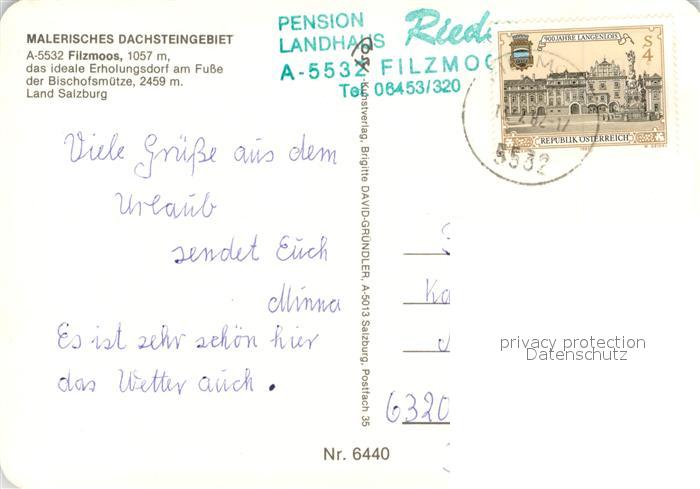 MALERISCHES DACHSTEINGEBIET
A-5532 Filzmoos, 1057 m,
das ideale Erholungsdorf am Fuße
der Bischofsmütze, 2459 m.
Land Salzburg
PENSION
LANDHAUS
A-5532 FILZMOO
Tel. 06453/320
900 JAHRE LANGENLOIS
S4
REPUBLIK ÖSTERREICH
5532
Viele Grüße aus dem
Urlaub
sendet Euch
Minna
Es ist sehr schön hier
das Wetter auch.
Kunstverlag, Brigitte DAVID-GRÜNDLER, A-5013 Salzburg, Postfach 35
6320
Nr. 6440
privacy protection
Datenschutz